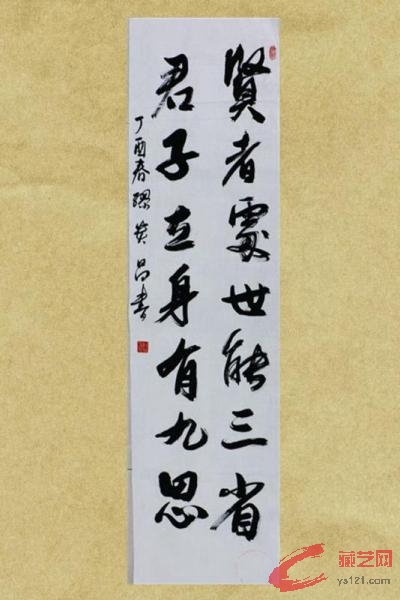 賢者處世能三省
君子立身有九思
丁酉春 昌書
藏艺网
ys121.com